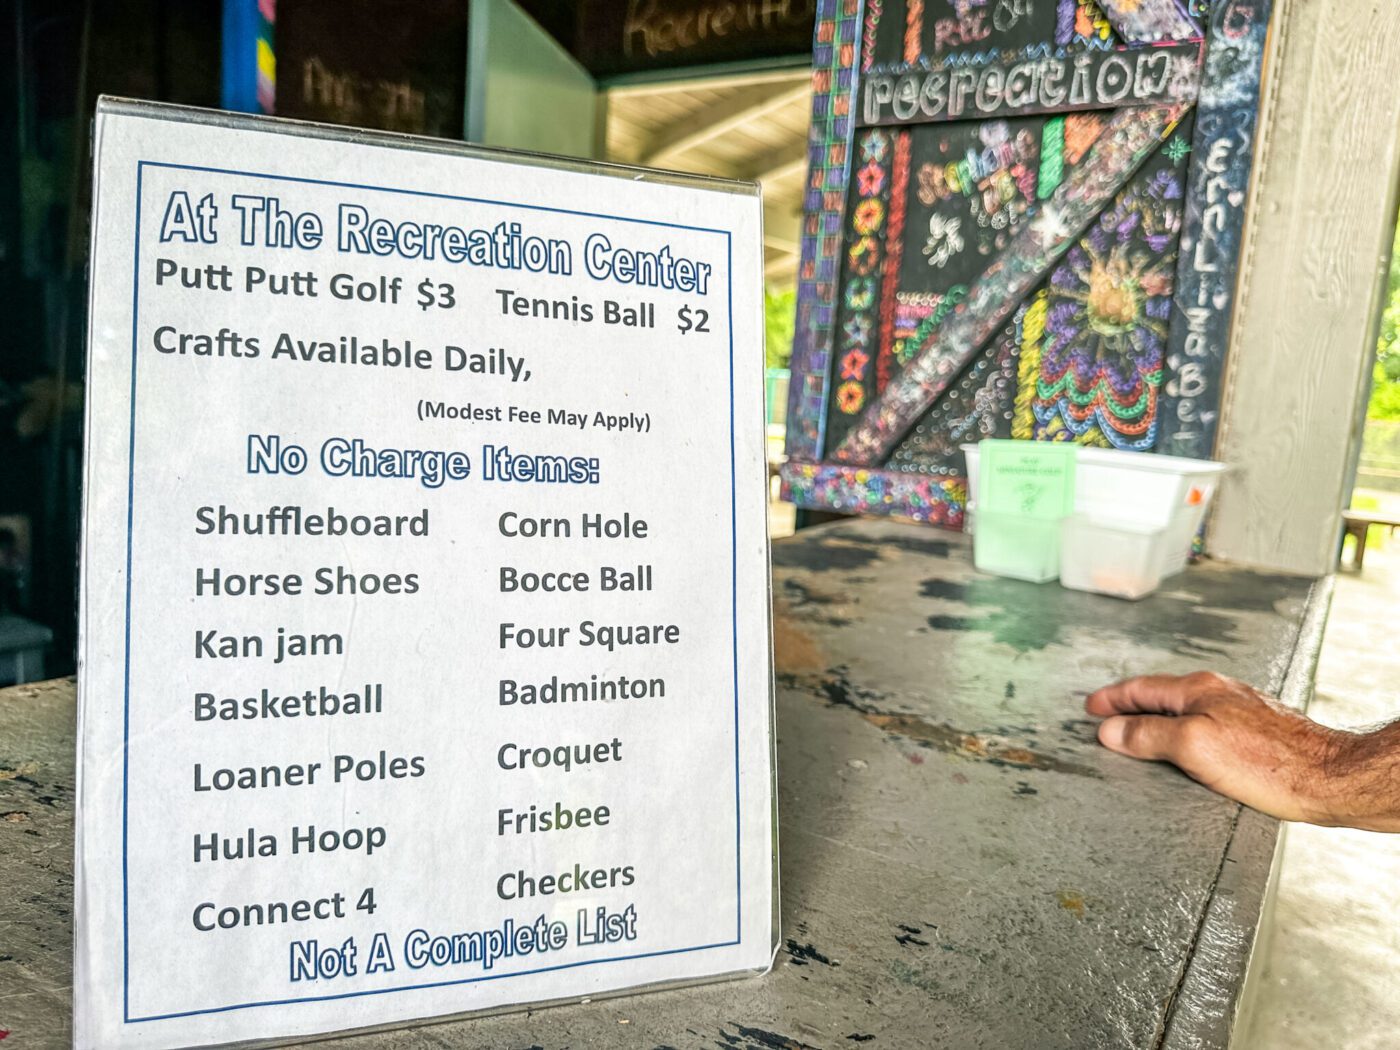 At The Recreation Center
Putt Putt Golf $3 Tennis Ball $2
Crafts Available Daily,
(Modest Fee May Apply)
No Charge Items:
Shuffleboard Corn Hole
Horse Shoes Bocce Ball
Kan jam Four Square
Basketball Badminton
Loaner Poles Croquet
Hula Hoop Frisbee
Connect 4 Checkers
Not A Complete List
Recreation